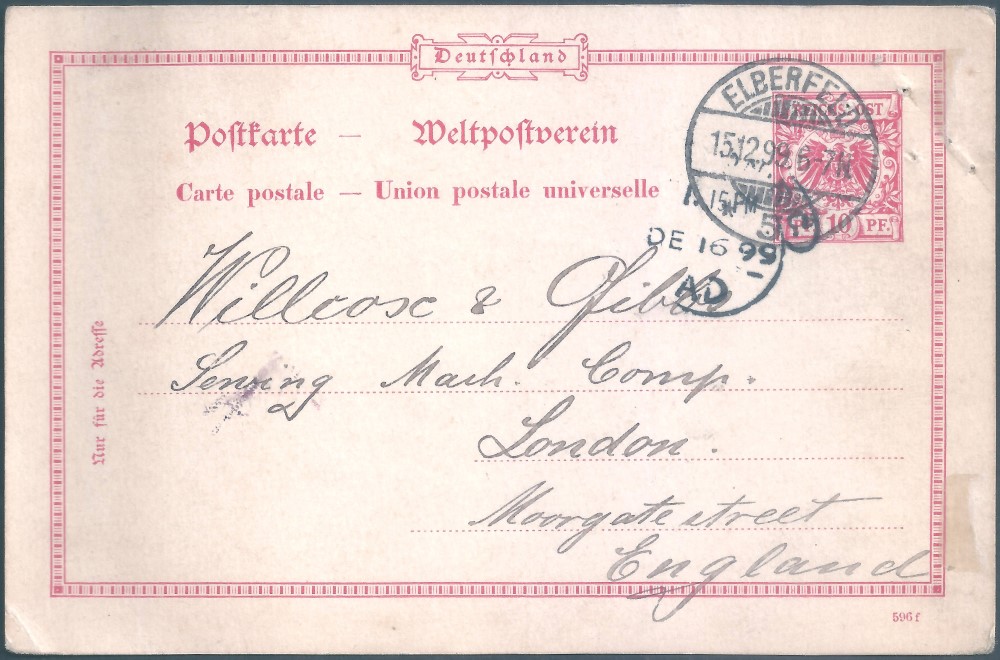 Deutschland
Postkarte — Weltpostverein
Carte postale — Union postale universelle
REICHSPOST
10 PF.
ELBERFELD
15.12.99 6-7N
15 PM
DE 16 99
AD
Willcox & Gibbs
Sewing Mach. Comp.
London.
Moorgate street
England
Nur für die Adresse
596 f